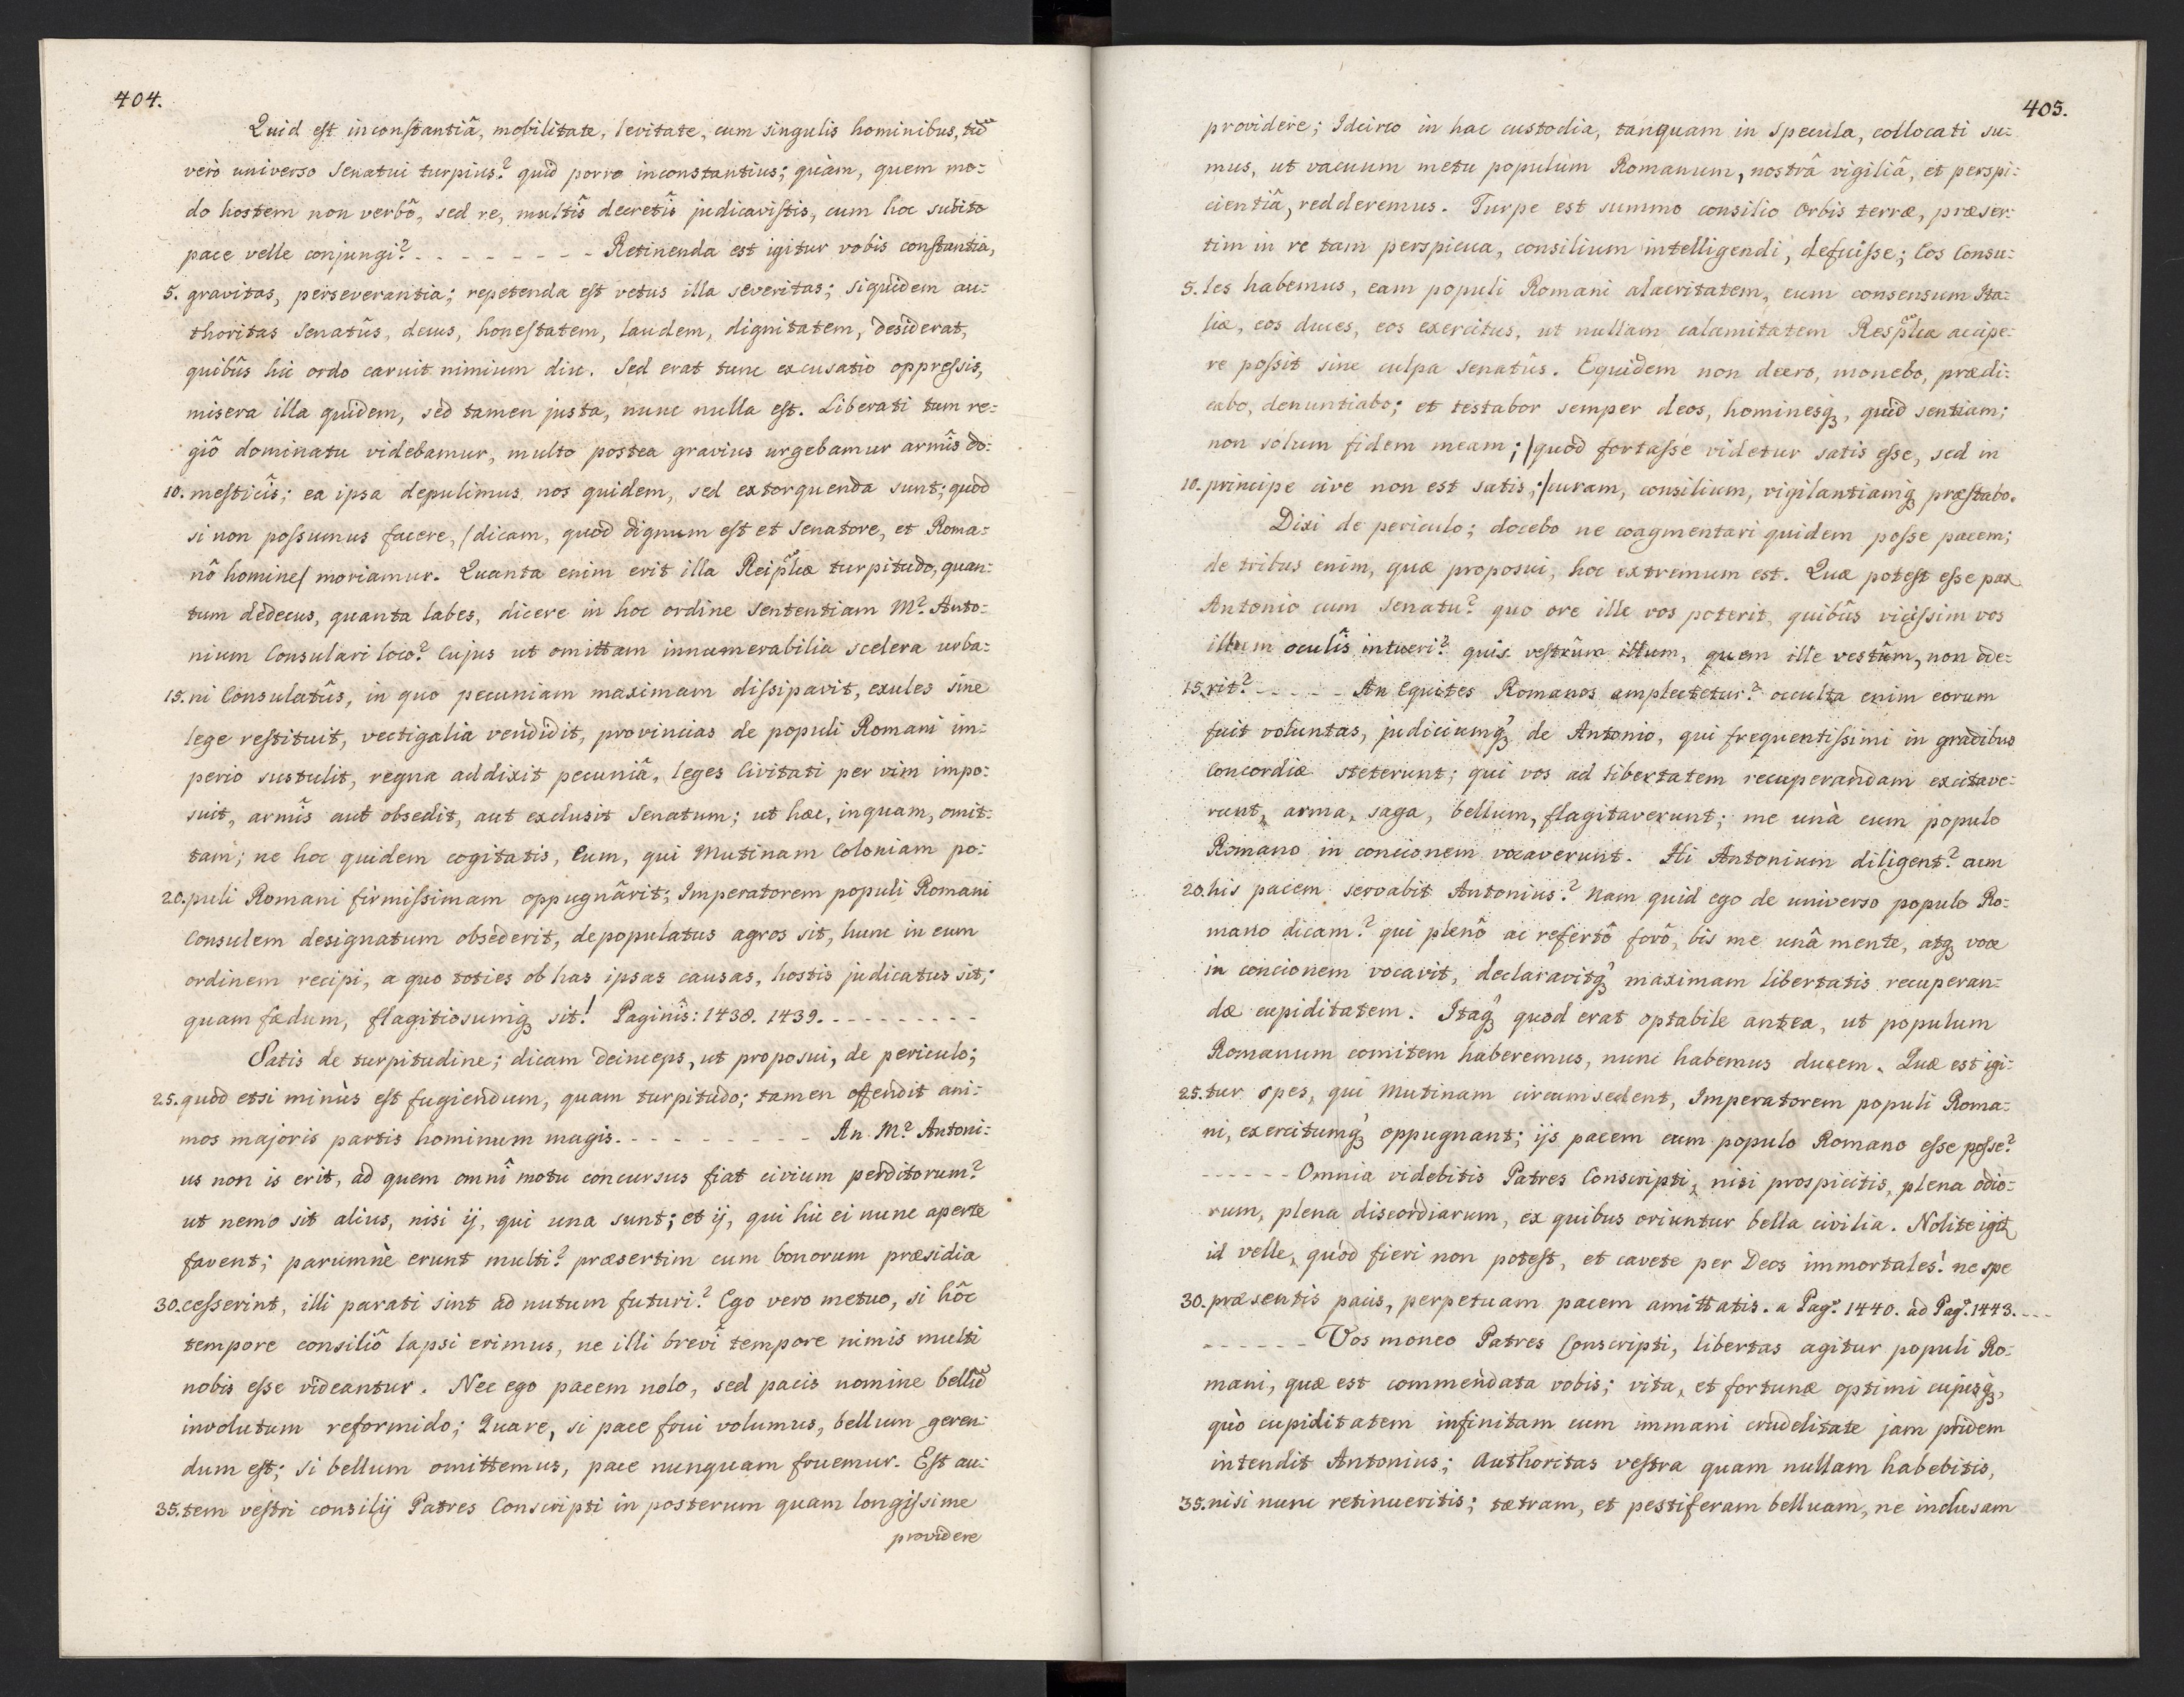 404.
Quid est inconstantiâ, mobilitate, levitate, cum singulis hominibus, tũ
verò universo Senatui turpius? quid porro inconstantius; quàm, quem mo:
do hostem non verbô, sed re, multîs decretîs judicavistis, cum hoc subito
pace velle conjungi? - - - - - - - - - Retinenda est igitur vobis constantia,
5. gravitas, perseverantia; repetenda est vetus illa severitas; siquidem au:
thoritas Senatûs, decus, honestatem, laudem, dignitatem, desiderat,
quibûs hic ordo caruit nimium diu. Sed erat tunc excusatio oppressis,
misera illa quidem, sed tamen justa, nunc nulla est. Liberati tum re:
giô dominatu videbamur, multo postea gravius urgebamur armîs do:
10. mesticîs; ea ipsa depulimus nos quidem, sed extorquenda sunt; quod
si non possumus facere, /dicam, quod dignum est et Senatore, et Roma:
nô homine/ moriamur. Quanta enim erit illa Reiplcæ turpitudo, quan:
tum dedecus, quanta labes, dicere in hoc ordine sententiam M? Anto:
nium Consulari loco? Cujus ut omittam innumerabilia scelera urba:
15. ni Consulatûs, in quo pecuniam maximam dissipavit, exules sine
lege restituit, vectigalia vendidit, provincias de populi Romani im:
perio sustulit, regna addixit pecuniâ, leges Civitati per vim impo:
suit, armîs aut obsedit, aut exclusit Senatum; ut hæc, inquam, omit:
tam; ne hoc quidem cogitatis, Eum, qui Mutinam Coloniam po:
20. puli Romani firmissimam oppugnârit; Imperatorem populi Romani
Consulem designatum obsederit, depopulatus agros sit, hunc in eum
ordinem recipi, a quo toties ob has ipsas causas, hostis judicatus sit;
quam fædum, flagitiosumq́ sit! Paginîs: 1438. 1439. - - - - - - - - -
Satis de turpitudine; dicam deinceps, ut proposui, de periculo;
25. quod etsi minùs est fugiendum, quam turpitudo; tamen offendit ani:
mos majoris partis hominum magis. - - - - - - - - - An M? Antoni:
us non is erit, ad quem omnî motu concursus fiat civium perditorum?
ut nemo sit alius, nisi ij, qui una sunt; et ij, qui hic ei nunc aperte
favent; parumnè erunt multi? præsertim cum bonorum præsidia
30. cesserint, illi parati sint ad nutum futuri? Ego vero metuo, si hôc
tempore consiliô lapsi erimus, ne illi brevî tempore nimis multi
nobis esse videantur. Nec ego pacem nolo, sed pacis nomine bellũ
involutum reformido; Quare, si pace frui volumus, bellum geren:
dum est; si bellum omittemus, pace nunquam fruemur. Est au:
35. tem vestri consilij Patres Conscripti in posterum quam longissime
providere
405.
providere; Idcirco in hac custodia, tanquam in specula, collocati su:
mus, ut vacuum metu populum Romanum, nostrâ vigiliâ, et perspi:
cientiâ, redderemus. Turpe est summo consilio Orbis terræ, præser:
tim in re tam perspicua, consilium intelligendi, defuisse; Eos Consu:
5. les habemus, eam populi Romani alacritatem, eum consensum Ita:
liæ, eos duces, eos exercitus, ut nullam calamitatem Resplca accipe:
re possit sine culpa senatûs. Equidem non deero, monebo, prædi:
cabo, denuntiabo; et testabor semper deos, hominesq́, quid sentiam;
non solum fidem meam; /quod fortasse videtur satis esse, sed in
10. principe cive non est satis;/curam, consilium, vigilantiamq́ præstabo.
Dixi de periculo; docebo ne coagmentari quidem posse pacem;
de tribus enim, quæ proposui, hoc extremum est. Quæ potest esse pax
Antonio cum Senatu? quo ore ille vos poterit, quibûs vicissim vos
illum oculîs intueri? quis vestrûm illum, quem ille vestûm, non ode:
15. rit? - - - - - An Equites Romanos amplectetur? occulta enim eorum
fuit voluntas, judiciumq́ de Antonio, qui frequentissimi in gradibus
Concordiæ steterunt; qui vos ad libertatem recuperandam excitave:
runt, arma, saga, bellum, flagitaverunt; me unà cum populo
Romano in concionem vocaverunt. Hi Antonium diligent? cum
20. his pacem servabit Antonius? Nam quid ego de universo populo Ro:
mano dicam? qui plenô ac refertô forô, bis me unâ mente, atq́ voce
in concionem vocavit, declaravitq́ maximam libertatis recuperan:
dæ cupiditatem. Itaq́ quod erat optabile antea, ut populum
Romanum comitem haberemus, nunc habemus ducem. Quæ est igi:
25. tur spes, qui Mutinam circumsedent, Imperatorem populi Roma:
ni, exercitumq́ oppugnant; ijs pacem cum populo Romano esse posse?
- - - - - - Omnia videbitis Patres Conscripti, nisi prospicitis, plena odio:
rum, plena discordiarum, ex quibus oriuntur bella civilia. Nolite igit̃
id velle, quod fieri non potest, et cavete per Deos immortales! ne spe
30. præsentis pacis, perpetuam pacem amittatis. a Pag? 1440. ad Pag? 1443. - - -
- - - - - - Vos moneo Patres Conscripti, libertas agitur populi Ro:
mani, quæ est commendata vobis; vita, et fortunæ optimi cujusq́,
quò cupiditatem infinitam cum immani crudelitate jam pridem
intendit Antonius; Authoritas vestra quam nullam habebitis,
35. nisi nunc retinueritis; tætram, et pestiferam belluam, ne inclusam